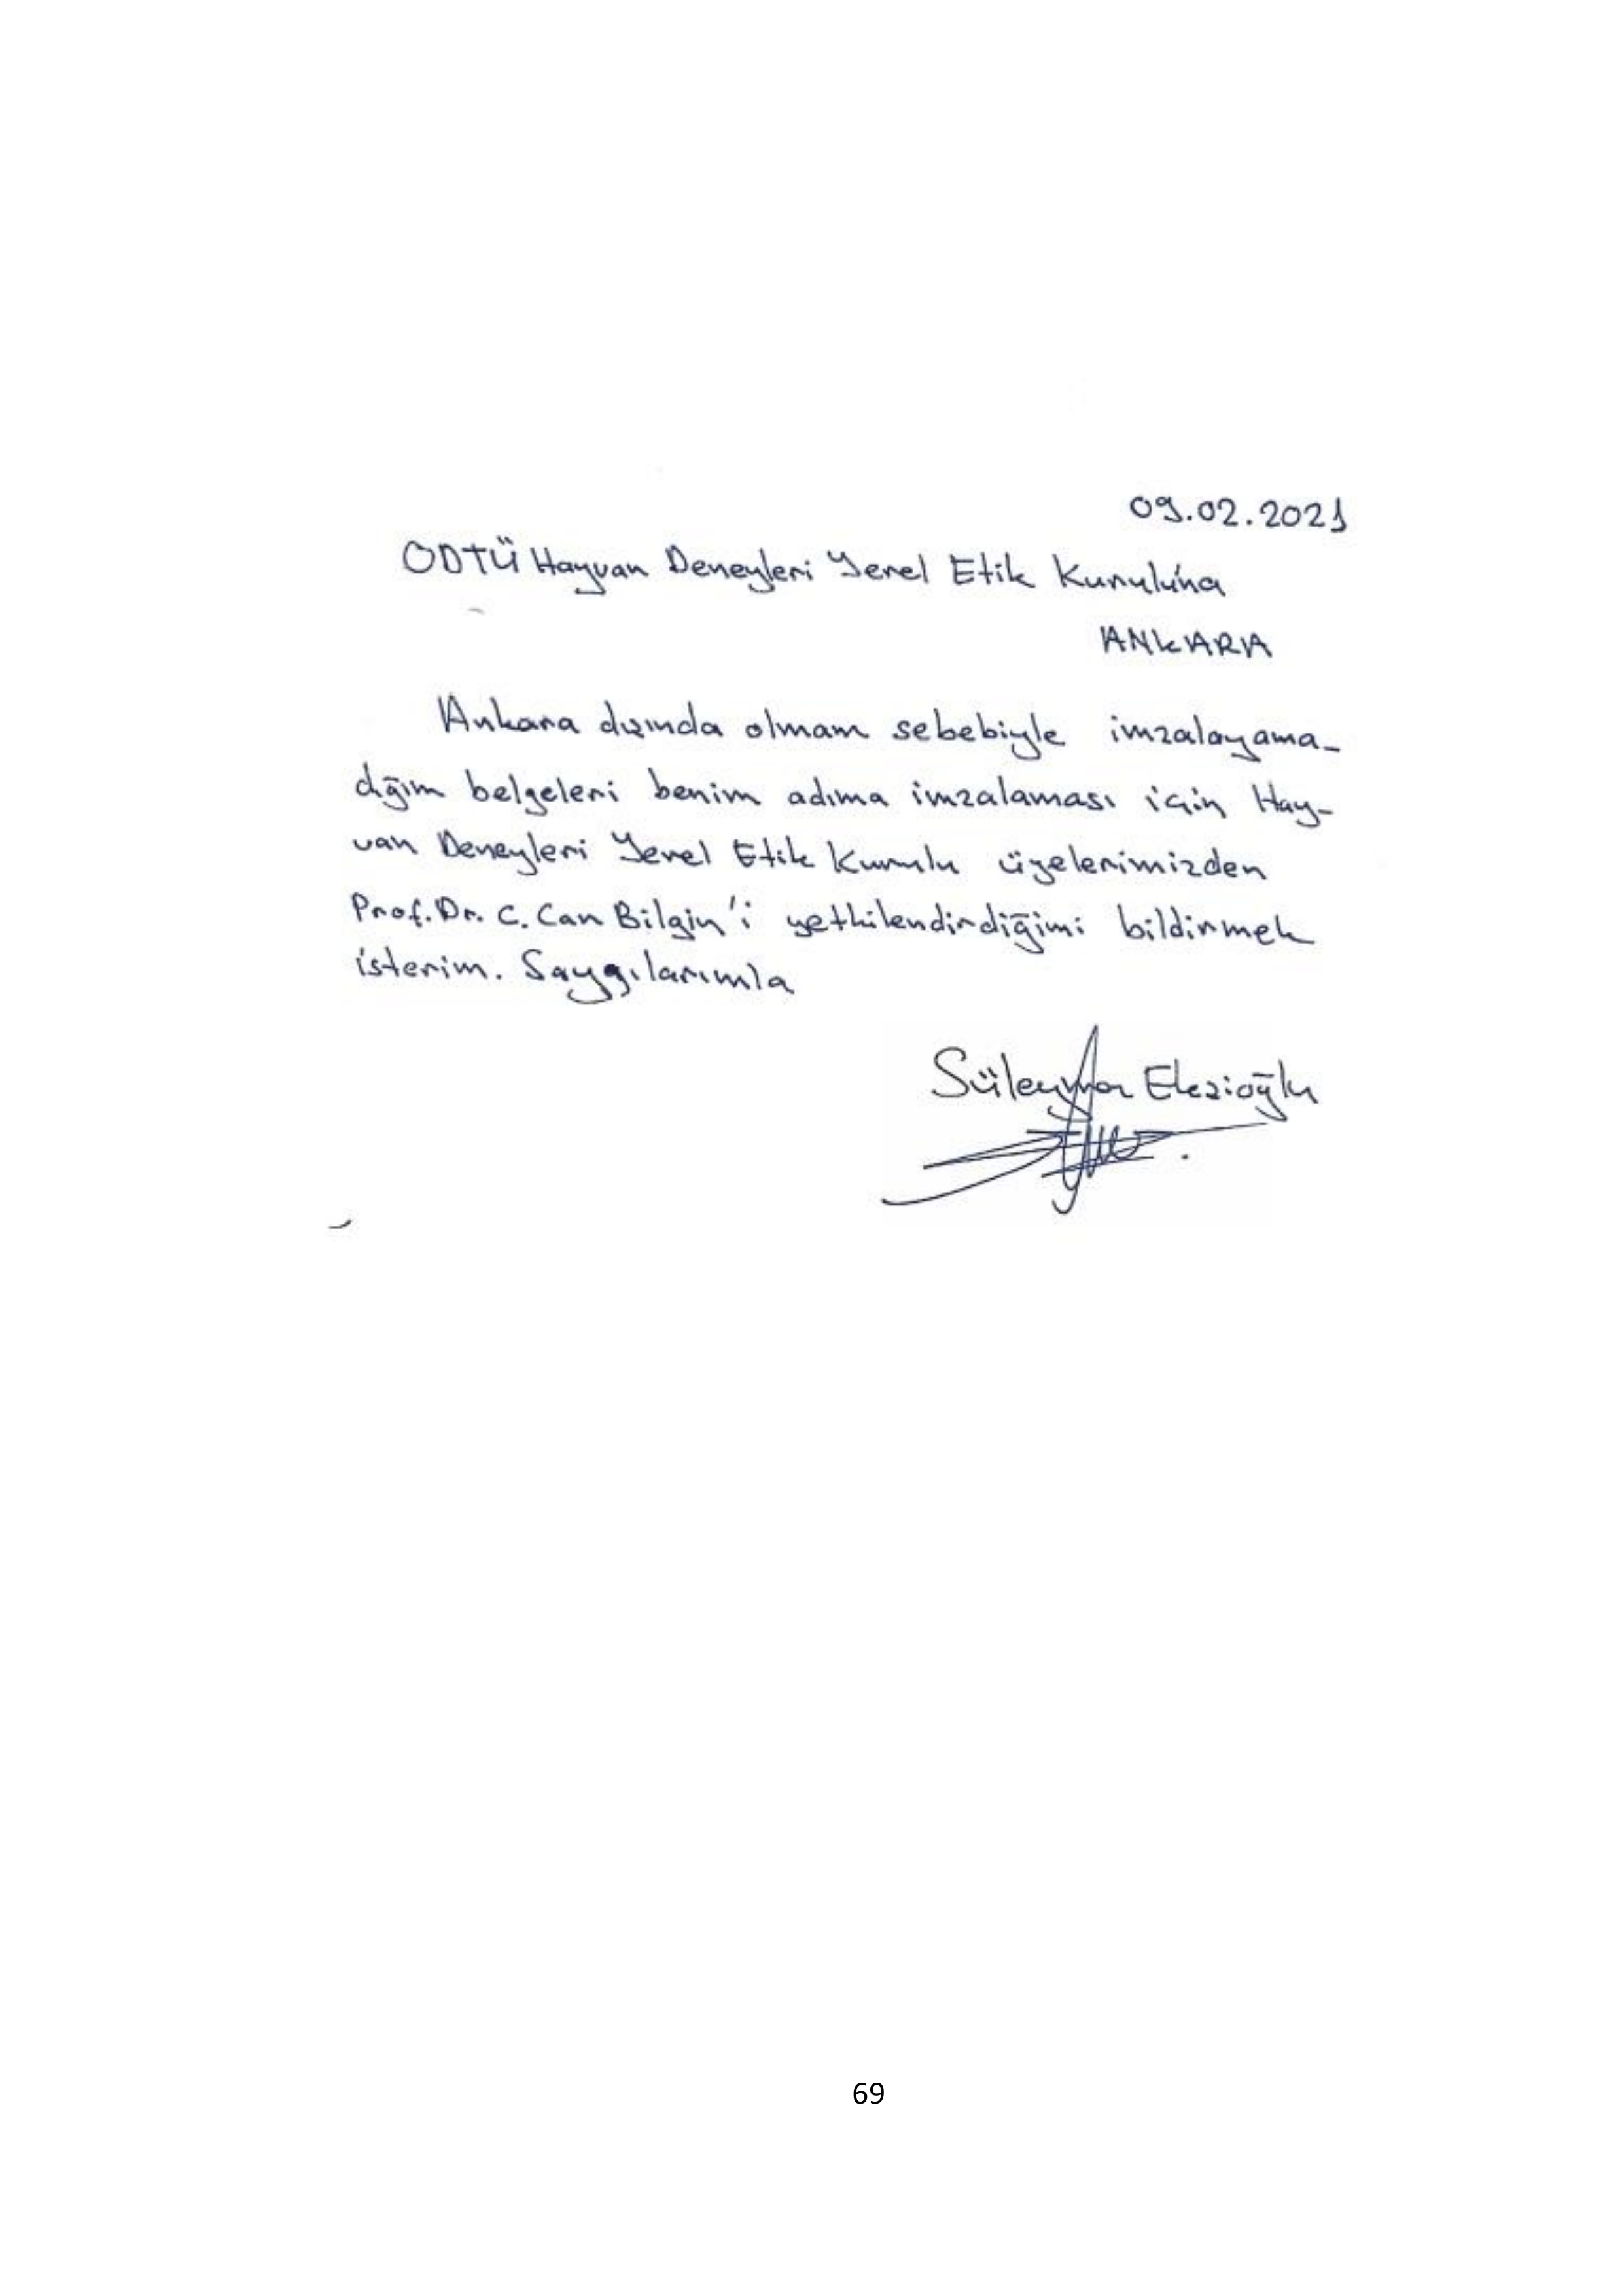 09.02.2021
ODTÜ Hayvan Deneyleri Yerel Etik Kurulu'na
ANKARA
Ankara dışında olmam sebebiyle imzalayama-
dığım belgeleri benim adıma imzalaması için Hay-
van Deneyleri Yerel Etik Kurulu üyelerimizden
Prof. Dr. C. Can Bilgin'i yetkilendirdiğimi bildirmek
isterim. Saygılarımla
Süleyman
69